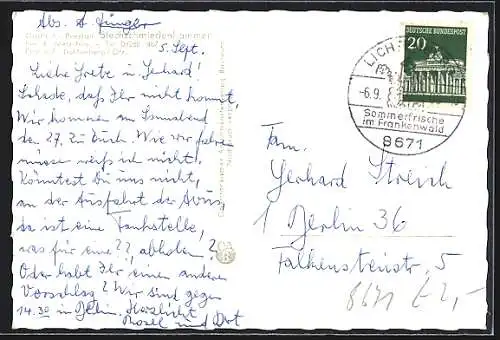 Abs. A. Junger
5. Sept.
Liebe Grete u. Gerhard!
Schade, daß Ihr nicht kommt.
Wir kommen am Sonnabend
den 27. zu Euch. Wie wir fahren
müssen weiß ich nicht.
Könntest Du uns nicht,
an der Ausfahrt der Avus,
da ist eine Tankstelle,
was für eine?? abholen?
Oder habt Ihr einen anderen
Vorschlag? Wir sind gegen
14.30 in Berlin. Herzlichst
Rosel und
DEUTSCHE BUNDESPOST
20
LICH
-6.9.
Sommerfrische
im Frankenwald
8671
Fam.
Gerhard Streich
1 Berlin 36
Falkensteinstr. 5
8671 € 2,-